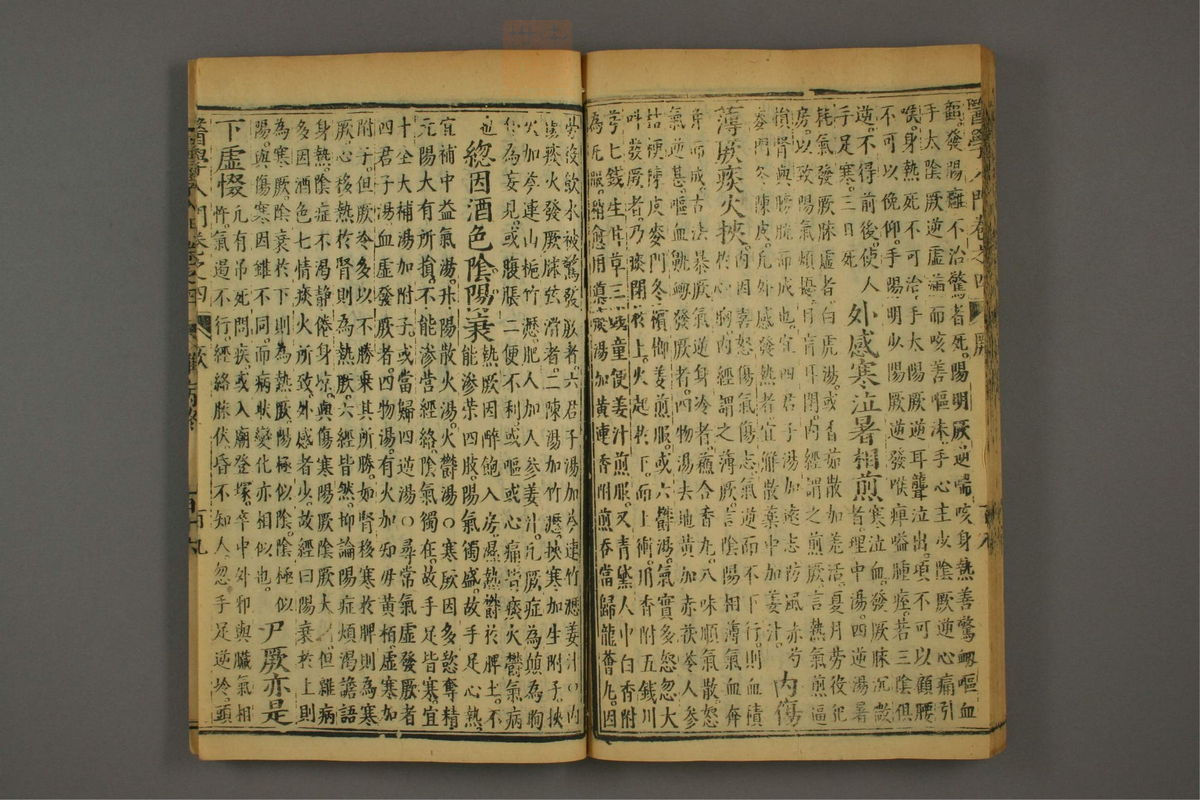 醫學入門卷之四 厥
衄發陽癰不治驚者死陽明厥逆喘咳身熱善驚衄嘔血
手太陰厥逆虛滿而咳善嘔沫手心主少陰厥逆心痛引
喉身熱死不可治手太陽厥逆耳聾泣出項不可以顧腰
不可以俛仰手陽明少陽厥逆發喉痺嗌腫痓若三陰俱
逆不得前後使人
手足寒三日死 外感寒泣暑相煎 寒泣血發厥脉沉微者理中湯四逆湯暑
耗氣發厥脉虛者白虎湯或香茹散加羌活夏月勞役犯
房以致陽氣煩擾目盲耳閉內經謂之煎厥言熱氣煎逼
損腎與膀胱而成也宜四君子湯加遠志防風赤芍
麥門冬陳皮凡外感發熱者宜解散藥中加姜汁 內傷
薄厥痰火挾 內因喜怒傷氣傷志氣逆而不下行則血積
於心胸內經謂之薄厥言陰陽相薄氣血奔
并而成古法暴厥氣逆身冷者蘇合香丸八味順氣散怒
氣逆甚嘔血鼽衄發厥者四物湯去地黃加赤茯苓人參
桔梗陳皮麥門冬檳榔姜煎服或六鬱湯氣實多怒忽大
叫發厥者乃痰閉於上火起於下而上衝用香附五錢川
芎七錢生甘草三錢童便姜汁煎服又青黛人中白香附
為丸服稍愈用導痰湯加黃連香附煎吞當歸龍薈丸因
勞役飲水被驚發厥者六君子湯加芩連竹瀝姜汁○內
虛痰火發厥脉弦滑者二陳湯加竹瀝挾寒加生附子挾
火加芩連山梔竹瀝肥人加人參姜汁凡厥症為顛為眴
仆為妄見或腹脹二便不利或嘔或心痛皆痰火鬱氣病
也 總因酒色陰陽衰 熱厥因醉飽入房濕熱鬱於脾土不
能滲榮四肢陽氣獨盛故手足心熱
宜補中益氣湯升陽散火湯火鬱湯○寒厥因多慾奪精
元陽大有所損不能滲營經絡陰氣獨在故手足皆寒宜
十全大補湯加附子或當歸四逆湯○尋常氣虛發厥者
四君子湯血虛發厥者四物湯有火加知母黃栢虛寒加
附子但厥冷多以不勝乘其所勝如腎移寒於脾則為寒
厥心移熱於腎則為熱厥六經皆然抑論陽症煩渴譫語
身熱陰症不渴靜倦身凉與傷寒陽厥陰厥大同但雜病
多因酒色七情痰火所致外感者少故經曰陽衰於上則
為寒厥陰衰於下則為熱厥陽極似陰陰極似
陽與傷寒因雖不同而病狀變化亦相似也 尸厥亦是
下虛惙 凡有吊死問疾或入廟登塚卒中外邪與臟氣相
忤氣遏不行經絡脉伏昏不知人忽手足逆冷頭
醫學入門卷之四 厥